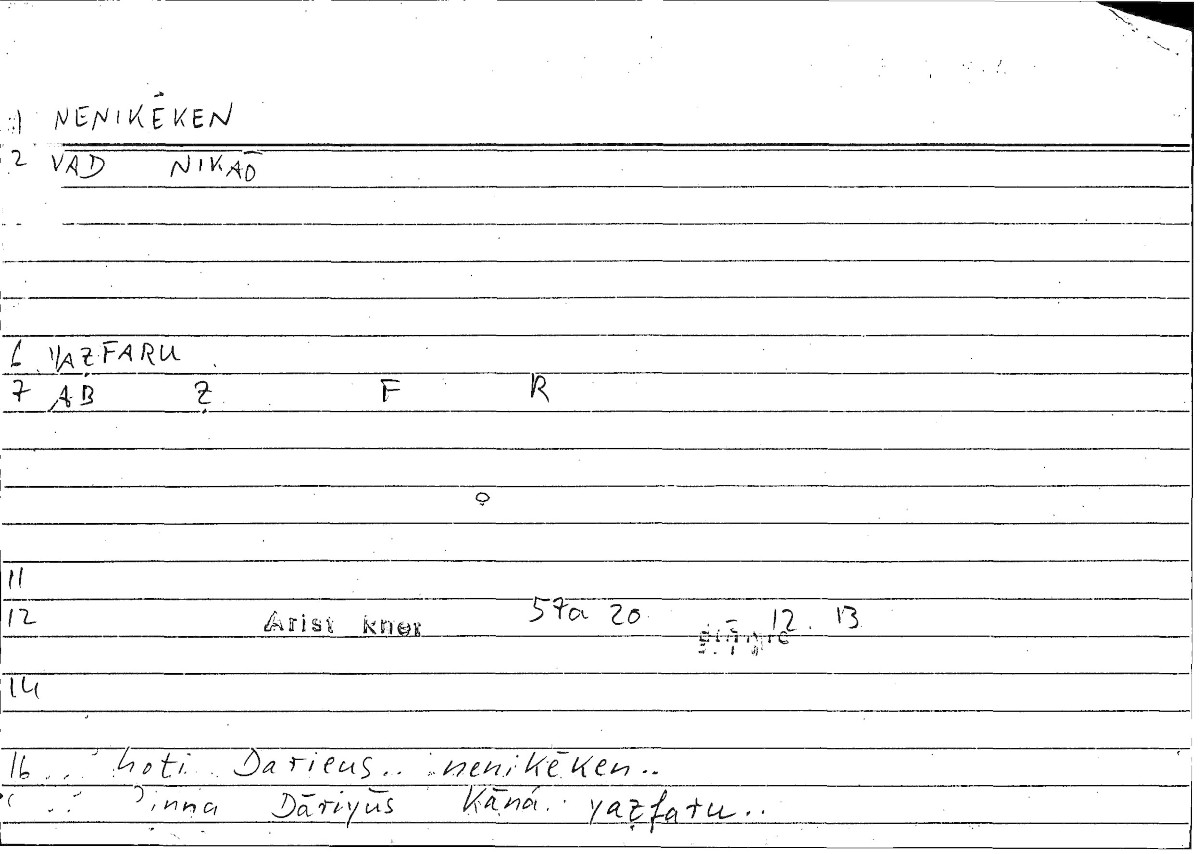 1 NENIKĒKEN
2 VAD NIKAŌ
6 YAẒFARU
7 AB Ẓ F R
11
12 Arist 57a 20 12. 13
14
16 .. hoti .. Darieus .. nenikēken ..
.. ʾinna Dāriyūs Kāna .. yaẓfaru ..